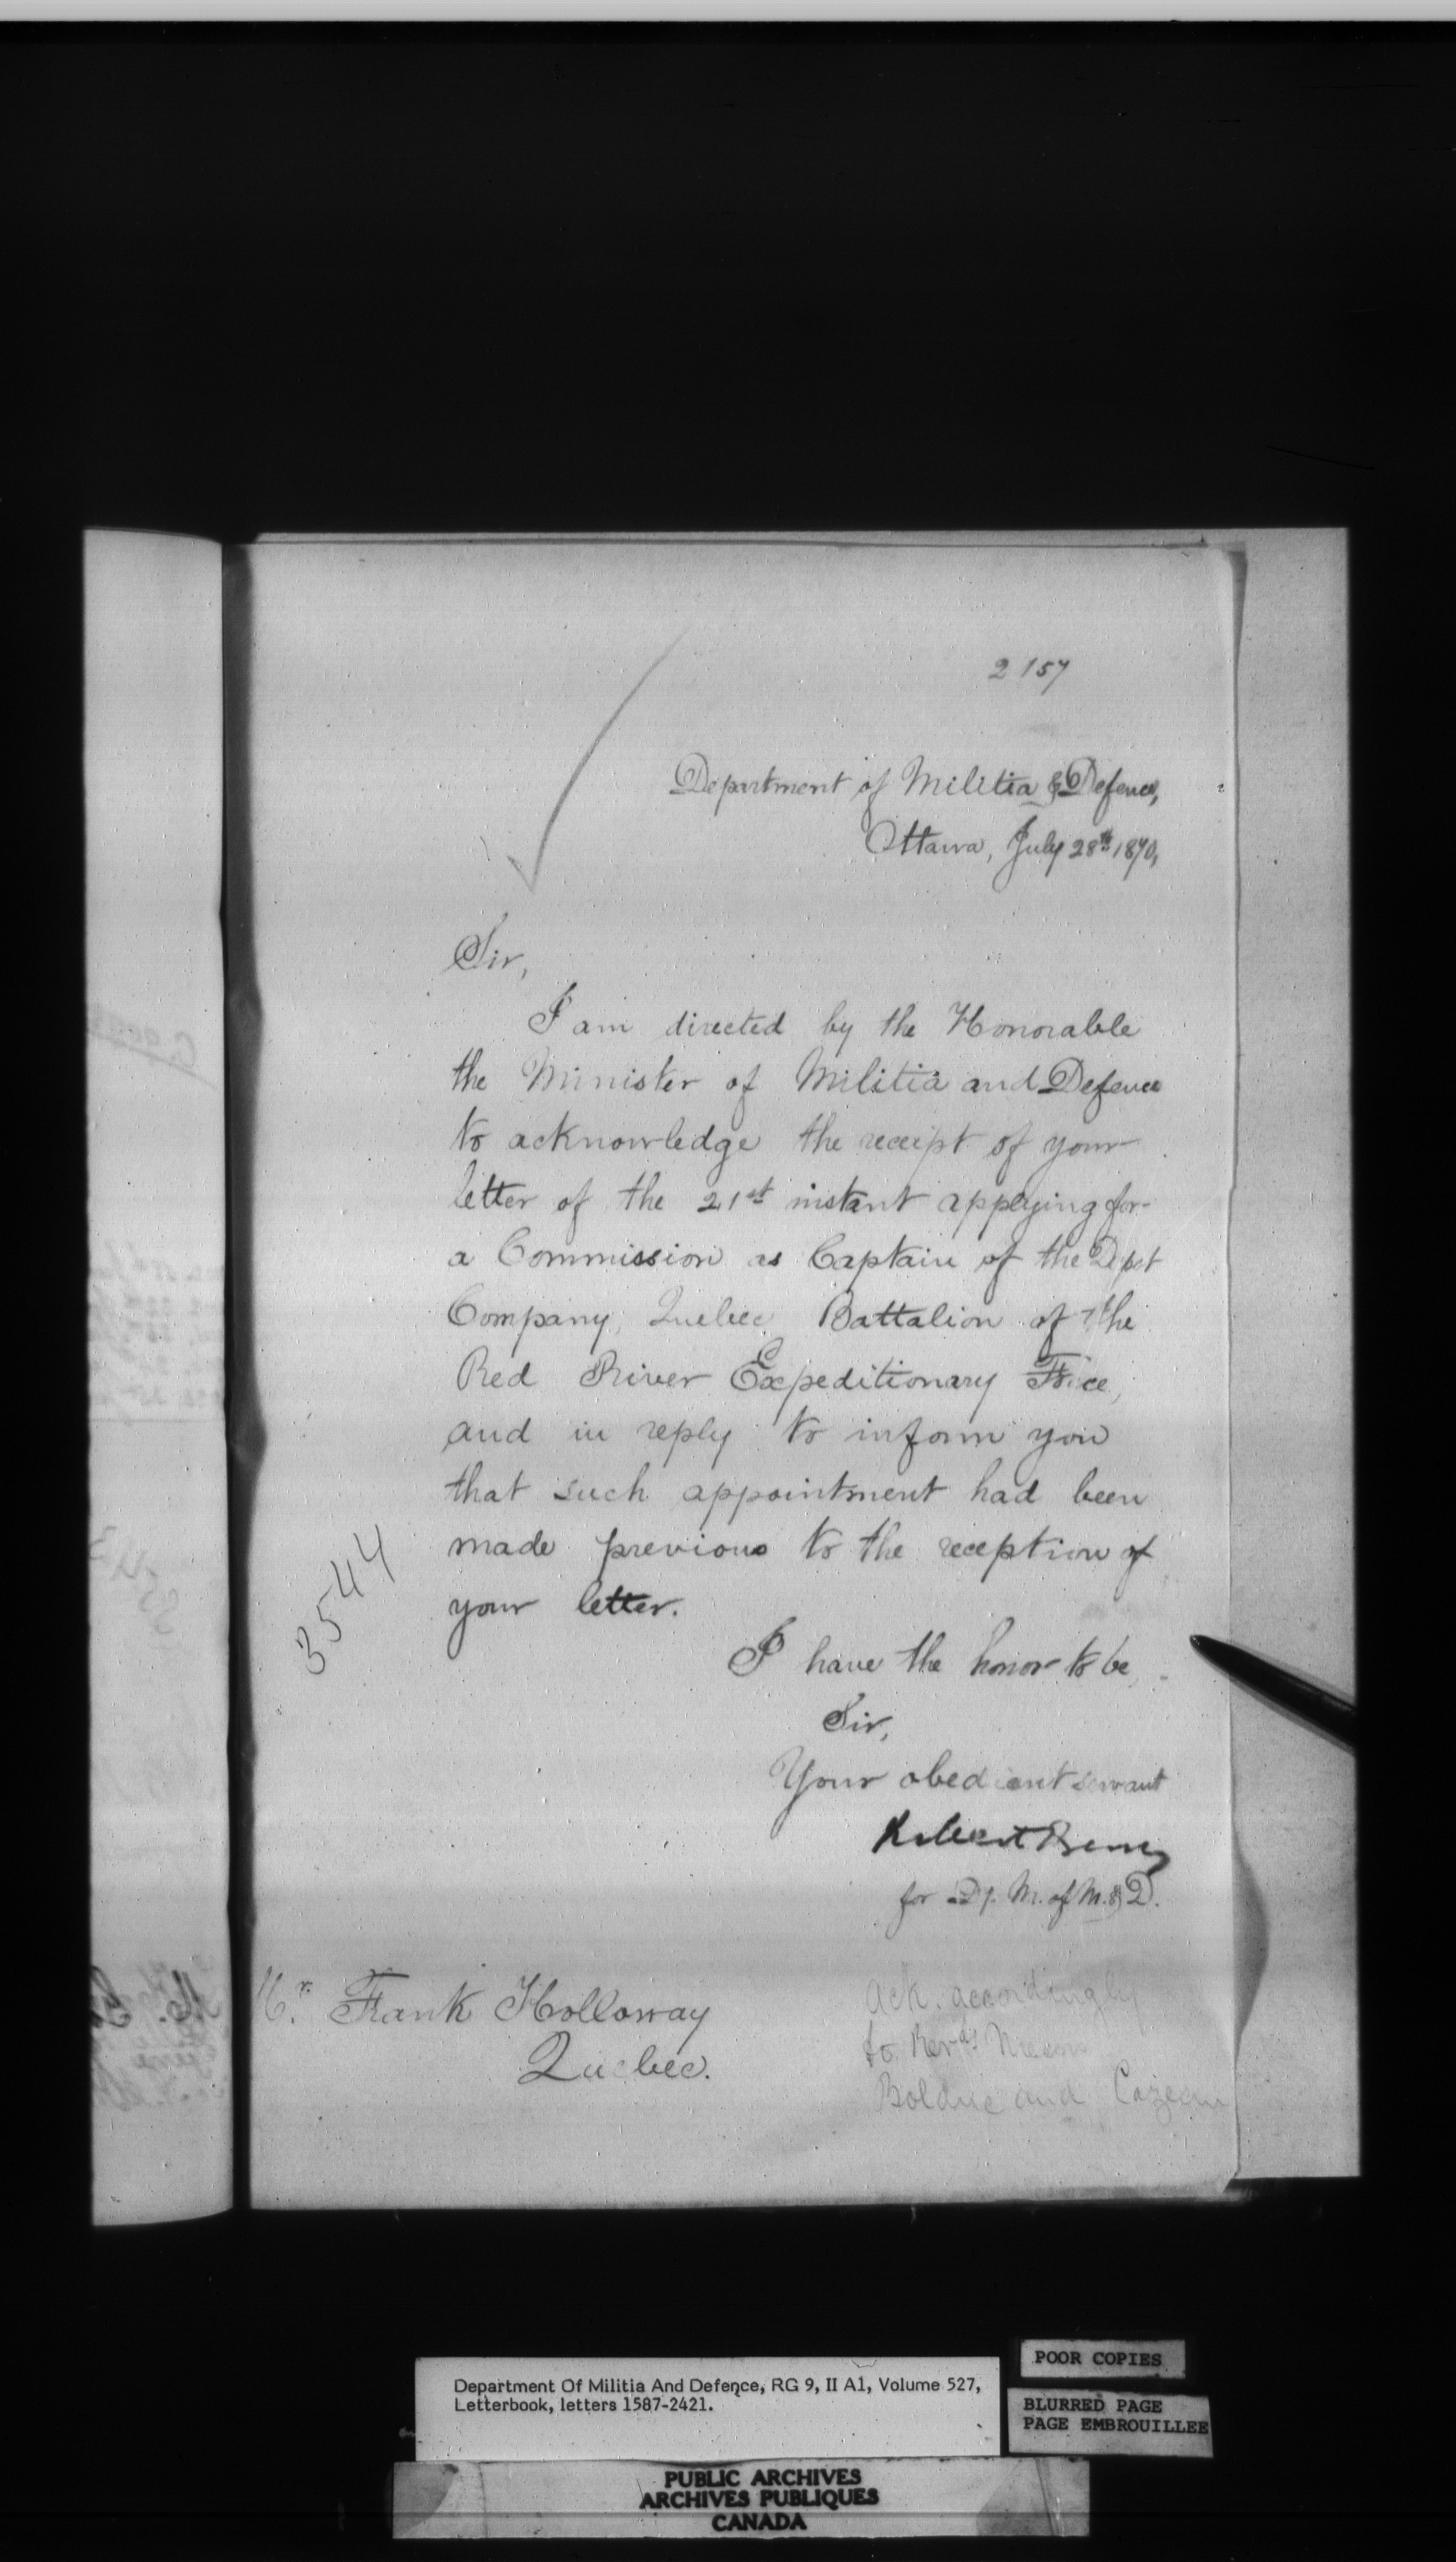 2157
Department of Militia & Defence,
Ottawa, July 28th 1870,
Sir,
I am directed by the Honorable
the Minister of Militia and Defence
to acknowledge the receipt of your
letter of the 21st instant applying for
a Commission as Captain of the Depot
Company, Quebec Battalion of the
Red River Expeditionary Force,
and in reply to inform you
that such appointment had been
made previous to the reception of
your letter.
3544
I have the honor to be,
Sir,
Your obedient servant
Robert
for Dy. M. of M. & D.
Mr. Frank Holloway
Quebec.
Ack. accordingly
to Revds
Bolduc and Cazeau
Department Of Militia And Defence, RG 9, II A1, Volume 527,
Letterbook, letters 1587-2421.
POOR COPIES
BLURRED PAGE
PAGE EMBROUILLEE
PUBLIC ARCHIVES
ARCHIVES PUBLIQUES
CANADA